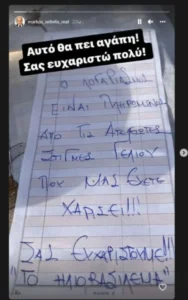 markos_seferlis_real
Αυτό θα πει αγάπη!
Σας ευχαριστώ πολύ!
Ο ΛΟΓΑΡΙΑΣΜΟΣ
ΕΙΝΑΙ ΠΛΗΡΩΜΕΝΟΣ
ΑΠΟ ΤΙΣ ΑΤΕΛΕΙΩΤΕΣ
ΣΤΙΓΜΕΣ ΓΕΛΙΟΥ
ΠΟΥ ΜΑΣ ΕΧΕΤΕ
ΧΑΡΙΣΕΙ!!!
ΣΑΣ ΕΥΧΑΡΙΣΤΟΥΜΕ!!!
"ΤΟ ΗΛΙΟΒΑΣΙΛΕΜΑ"